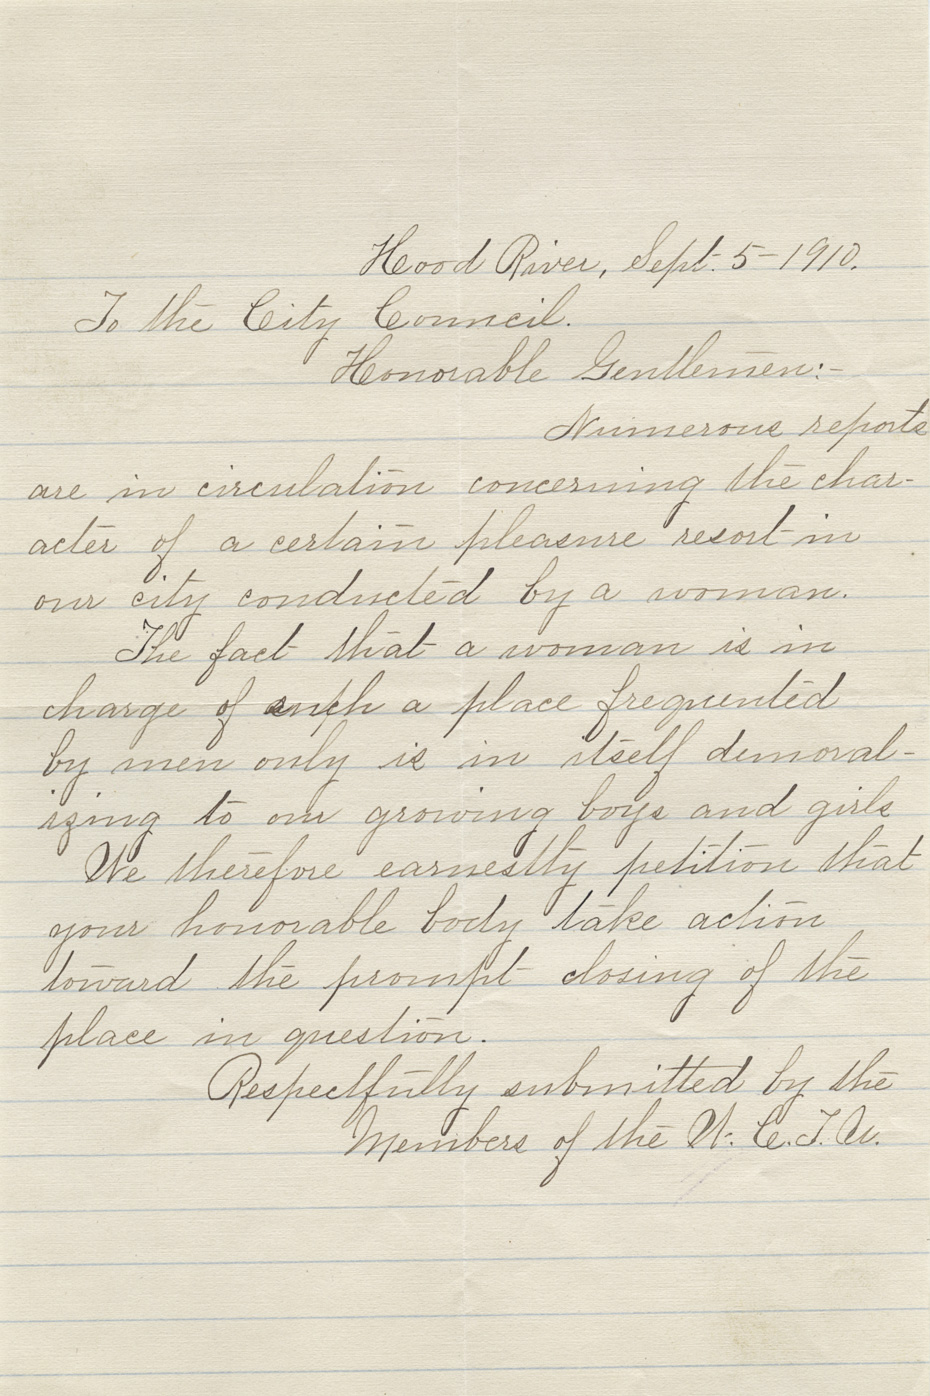 Hood River, Sept. 5-1910.
To the City Council.
Honorable Gentlemen:-
Numerous reports
are in circulation concerning the char-
acter of a certain pleasure resort in
our city conducted by a woman.
The fact that a woman is in
charge of such a place frequented
by men only is in itself demoral-
izing to our growing boys and girls
We therefore earnestly petition that
your honorable body take action
toward the prompt closing of the
place in question.
Respectfully submitted by the
Members of the W. C. T. U.